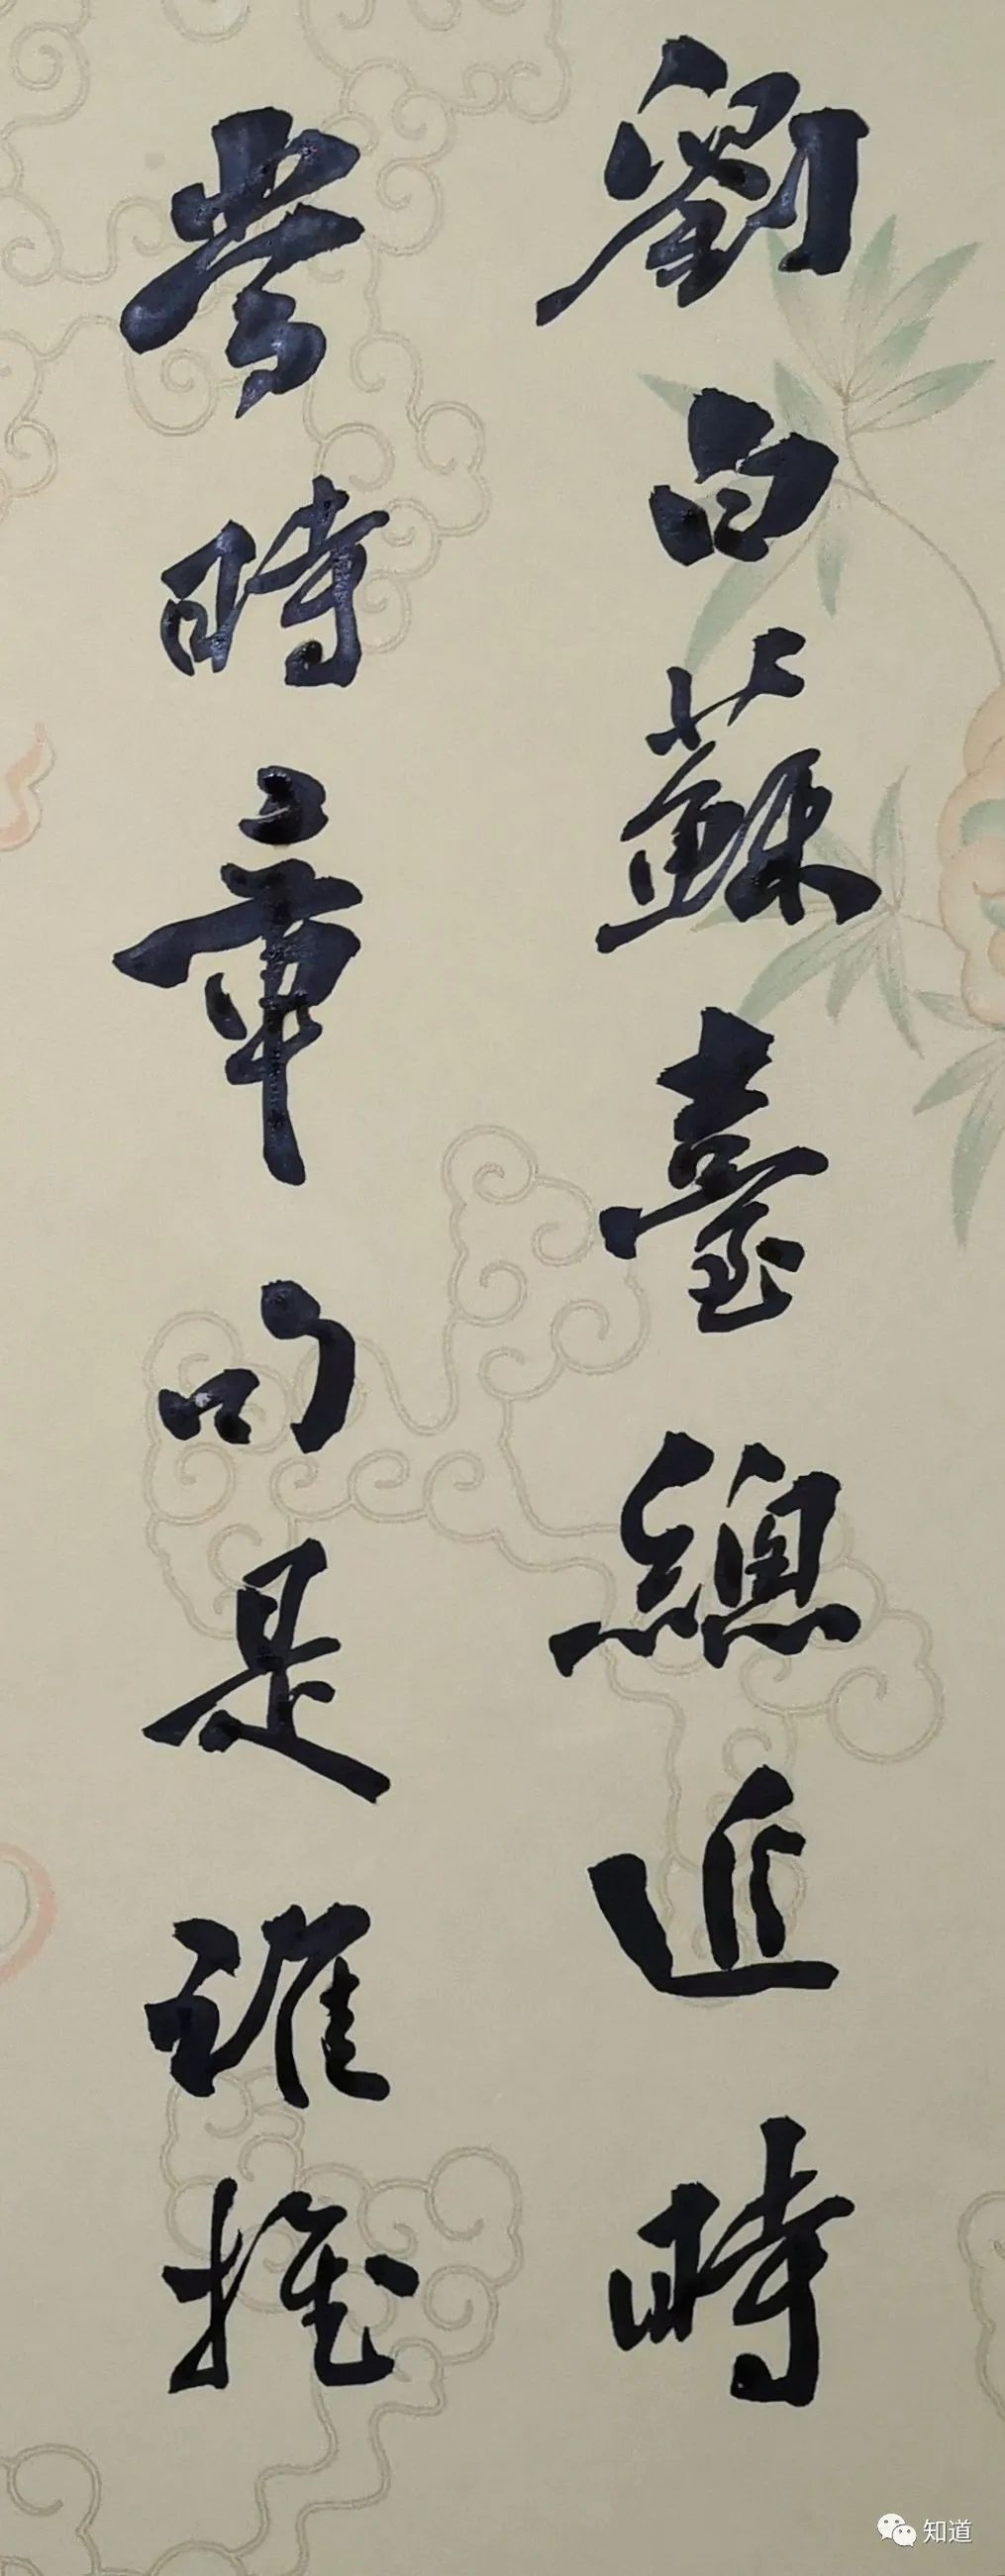 劉白蘇臺總近時
當時章句是誰推
知道